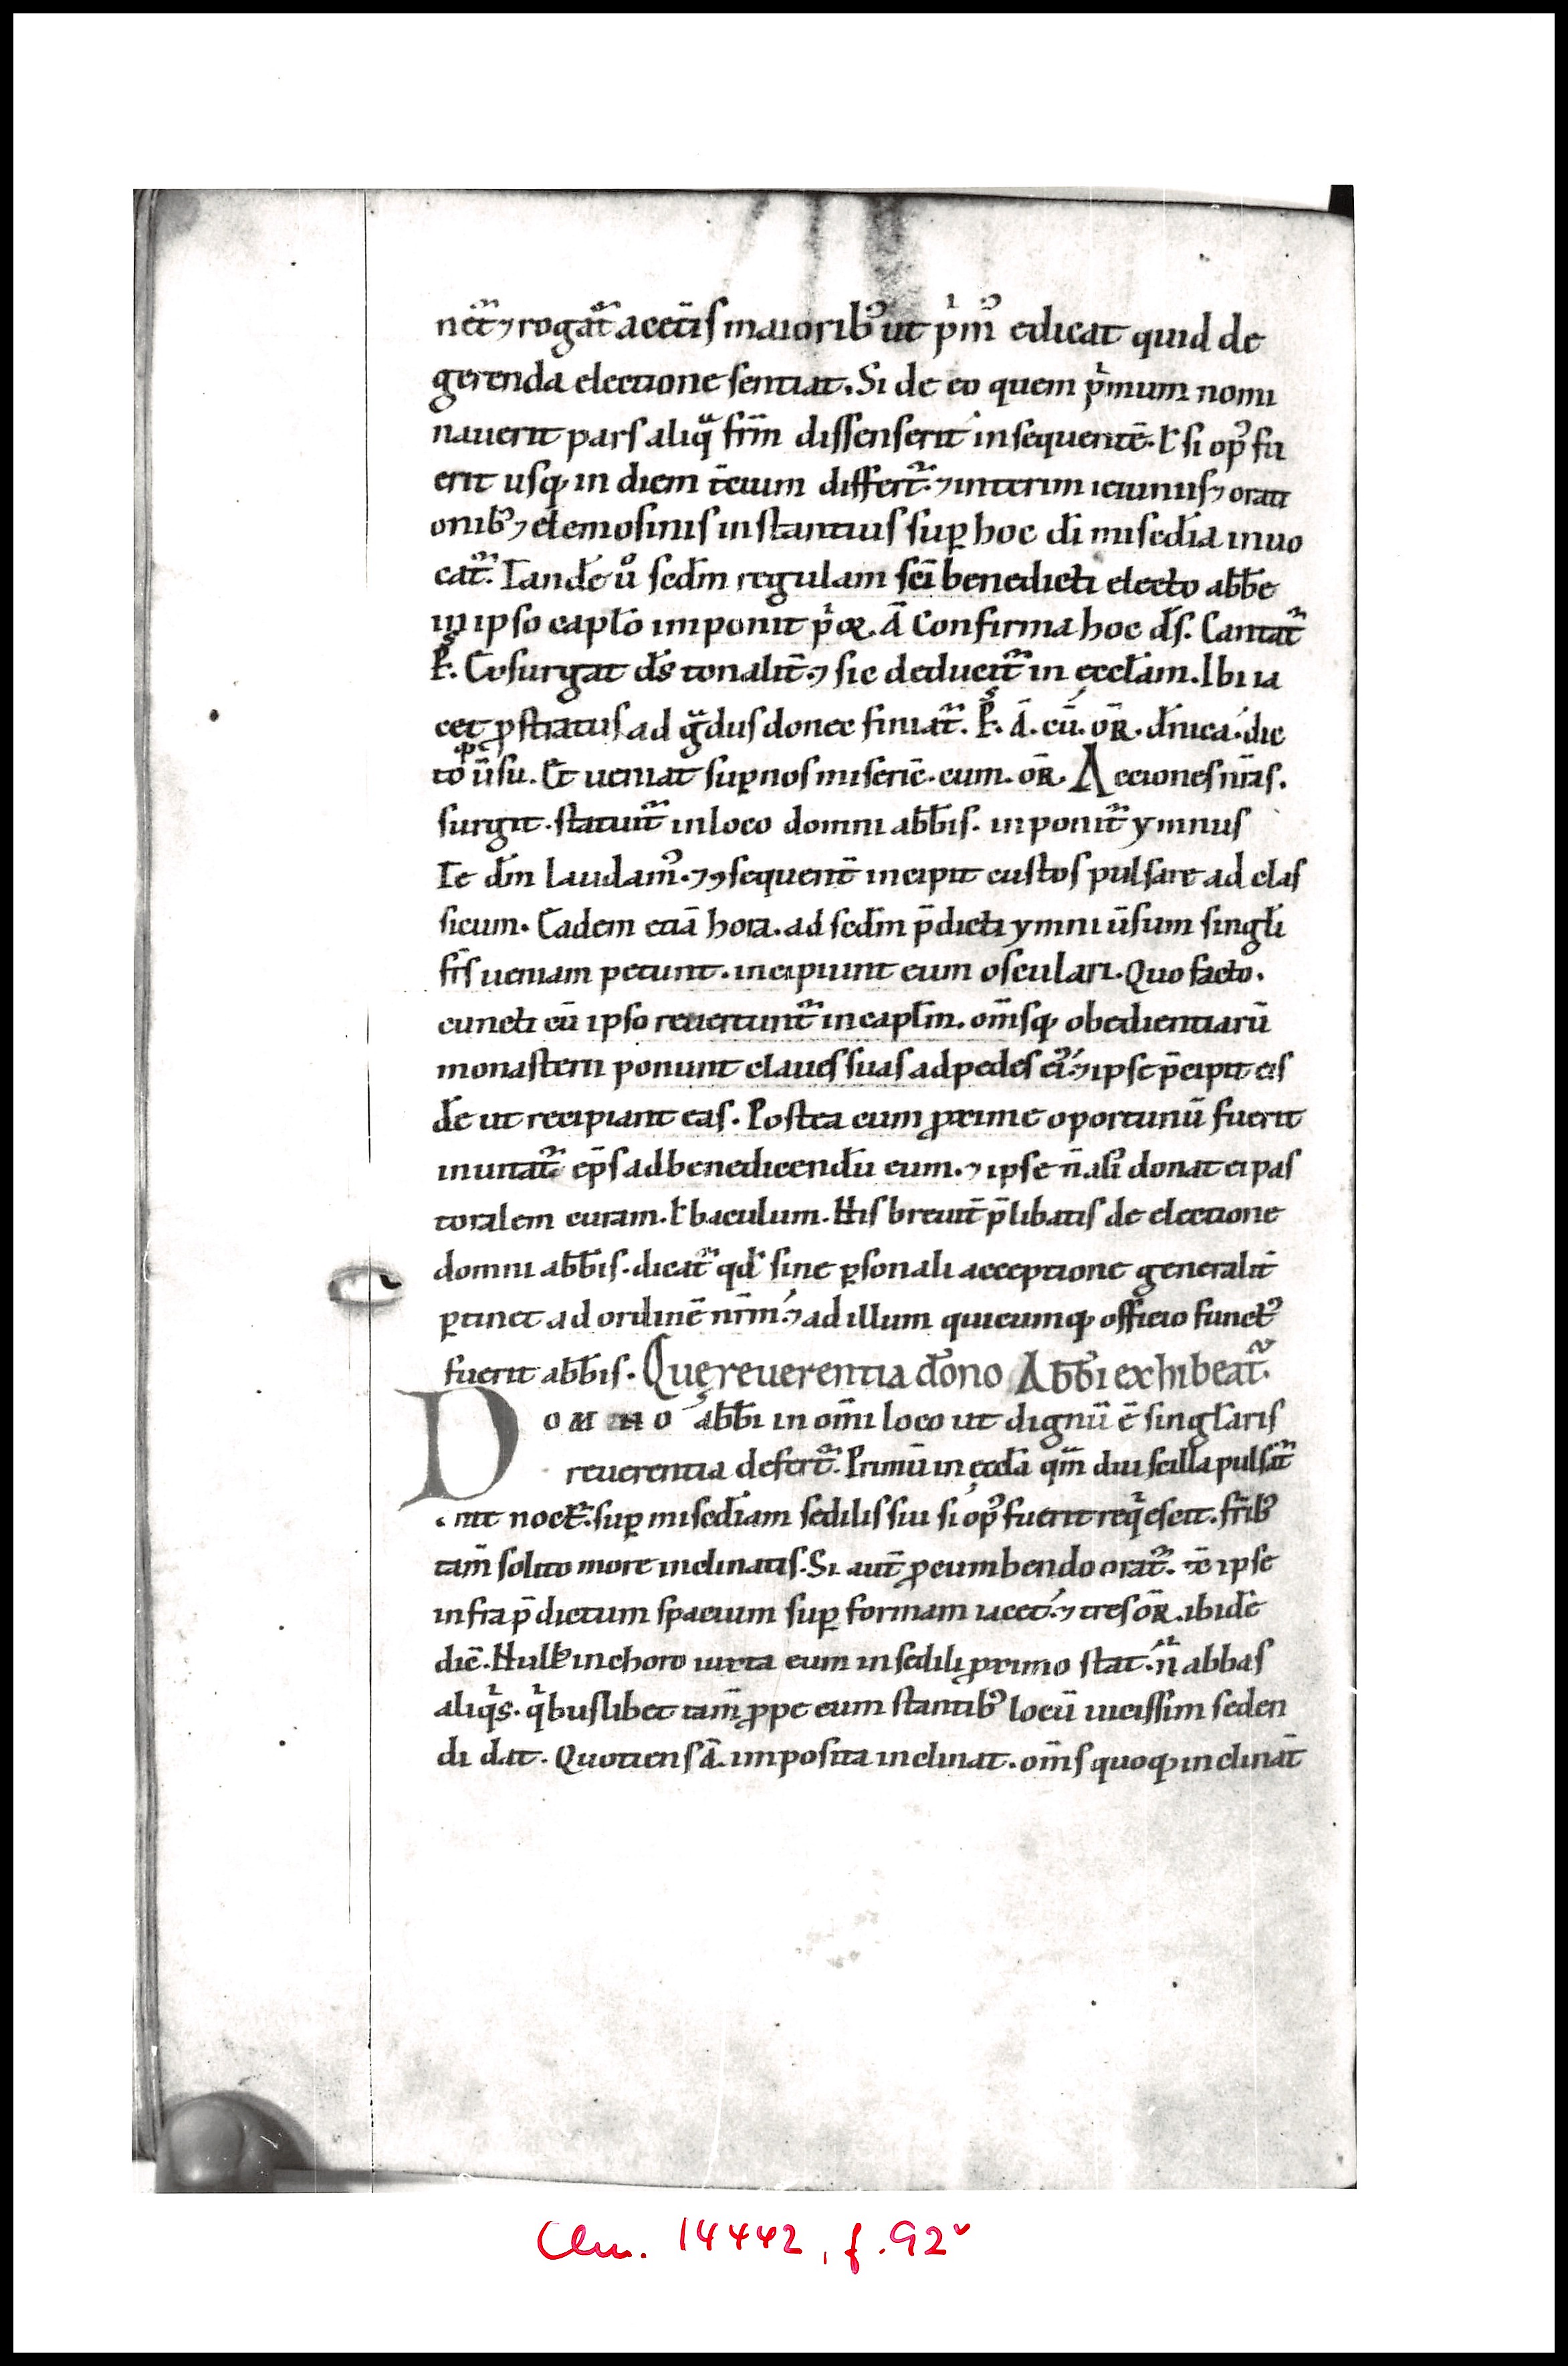 net᷑ ⁊ rogat᷑ a cet̄is maiorib᷒ ut p̍m᷒ edicat quid de
gerenda electione sentiat. Si de eo quem p̍mum nomi
nauerit pars aliqᷓ fr̄m dissenserit in sequentē. ł si op᷒ fu
erit usq; in diem t̄cium differt᷑. ⁊ interim ieiuniis ⁊ orati
onib᷒ ⁊ elemosinis instantius suꝑ hoc dī misedīa inuo
cat᷑. Tandē uͦ sedm̄ regulam sc̄i benedicti electo abb̄e
in ipso capłō imponit p̍or. ā Confirma hoc ds̄. Cantat᷑
℟. Exsurgat ds̄ tonalit̄. ⁊ sic deducit᷑ in ęccłam. Ibi ia
cet ꝓstratus ad gᷓdus donec finiat᷑. ℟. ā. cū. or̄. dn̄ica. dic
to ūsu. Et ueniat suꝑ nos miseric̄. cum. or̄. Acciones nr̄as.
surgit. statuit᷑ in loco domni abb̄is. inponit᷑ ymnus
Te dm̄ laudam᷒. ⁊ ꝯsequent̄ incipit custos pulsare ad clas
sicum. Eadem etiā hora. ad sedm̄ p̄dicti ymni ūsum singłi
fr̄s ueniam petunt. incipiunt eum osculari. Quo facto.
cuncti cū ipso reuertunt᷑ in capłm. om̄sq; obedientiarū
monasterii ponunt claues suas ad pedes ei᷒. ⁊ ipse p̄cipit eis
dē ut recipiant eas. Postea cum ꝓxime oportunū fuerit
inuitat᷑ ep̄s ad benedicendū eum. ⁊ ipse n̄ alī donat ei pas
toralem curam. ł baculum. His breuit̄ p̄libatis de electione
domni abb̄is. dicat᷑ qd̄ sine ꝑsonali acceptione generalit̄
ꝑtinet ad ordinē nr̄m. ⁊ ad illum quicumq; officio funct᷒
fuerit abb̄is. Quę reuerentia dōno Abb̄i exhibeat᷑.
Domno abb̄i in om̄i loco ut dignū ē singłaris
reuerentia defert᷑. Primū in ęccłā qm̄ diu scilla pulsat᷑
suꝑ misedīam sedilis sui si op᷒ fuerit req̍escit. fr̄ib᷒
tam̄ solito more inclinatis. Si aut̄ ꝓcumbendo orat᷑. tē ipse
infra p̄dictum spacium suꝑ formam iacet. ⁊ tres or̄. ibidē
dic̄. Null᷒ in choro iuxta eum in sedili ꝓximo stat. n̍ abbas
aliq̍s. q̍buslibet tam̄ ꝓpe eum stantib᷒ locū uicissim seden
di dat. Quotiens ā. imposita inclinat. om̄s quoq; inclinat̄
Clm. 14442, f. 92v